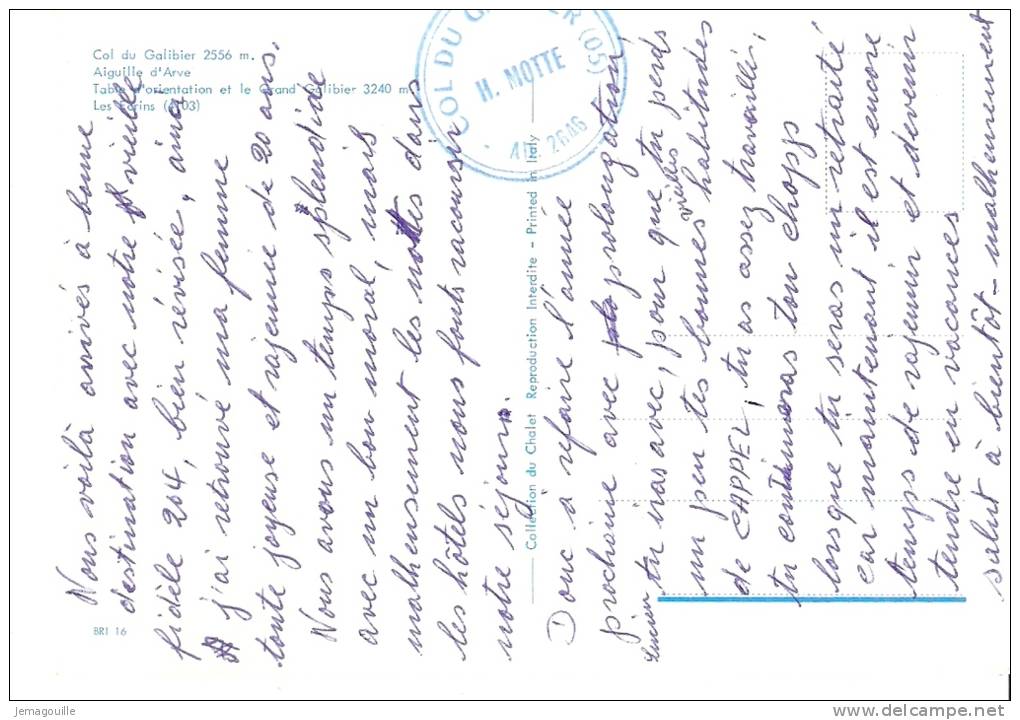 Col du Galibier 2556 m.
Aiguille d'Arve
Table d'orientation et le Grand Galibier 3240 m.
Les Ecrins (4103)
COL DU GALIBIER (05)
H. MOTTE
ALT. 2646
BRI 16
Collection du Chalet Reproduction Interdite - Printed in Italy
Nous voilà arrivés à bonne
destination avec notre vieille
fidèle 204, bien révisée, ainsi
j'ai retrouvé ma femme
toute joyeuse et rajeunie de 20 ans.
Nous avons un temps splendide
avec un bon moral, mais
malheusement les nottes dans
les hôtels nous fonts racoursir
notre séjour.
Donc à refaire l'année
prochaine avec prolongation
Lucien tu iras avec, pour que tu perds
un peu tes visites bonnes habitudes
de CAPPEL, tu as assez travaillé,
tu continueras ton chopp
lorsque tu seras un retraité
car maintenant il est encore
temps de rajeunir et devenir
tendre en vacances
salut à bientôt - malheureusement
Jemagouille
delcampe.net